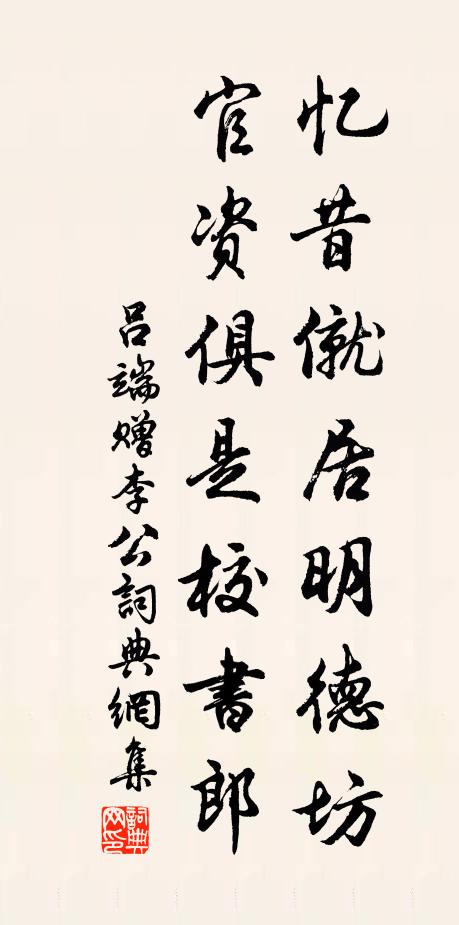 忆昔僦居明德坊
官资俱是校书郎
吕端赠李公詞典網集
詞典網印